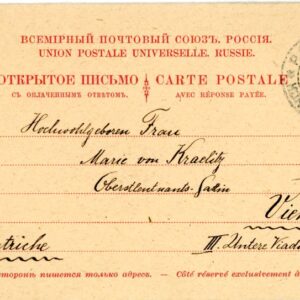 ВСЕМІРНЫЙ ПОЧТОВЫЙ СОЮЗЪ. РОССІЯ.
UNION POSTALE UNIVERSELLE. RUSSIE.
ОТКРЫТОЕ ПИСЬМО CARTE POSTALE
СЪ ОПЛАЧЕННЫМЪ ОТВѢТОМЪ. AVEC RÉPONSE PAYÉE.
Hochwohlgeboren Frau
Marie von Kraelitz
Oberstleutnants-Gattin
Vien
triche III. Untere Viadu
сторонѣ пишется только адресъ. — Côté réservé exclusivement à